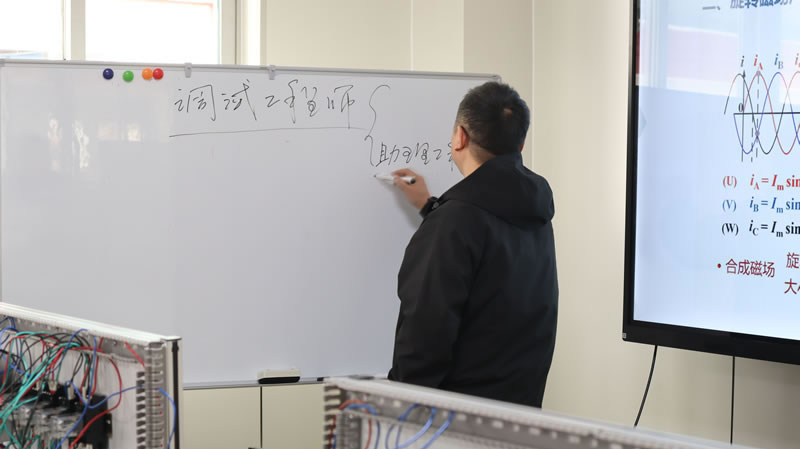 调试工程师
助理工
二、旋转磁场
i iA iB
0
(U) iA = Im sin
(V) iB = Im sin
(W) iC = Im sin
• 合成磁场 旋
大小